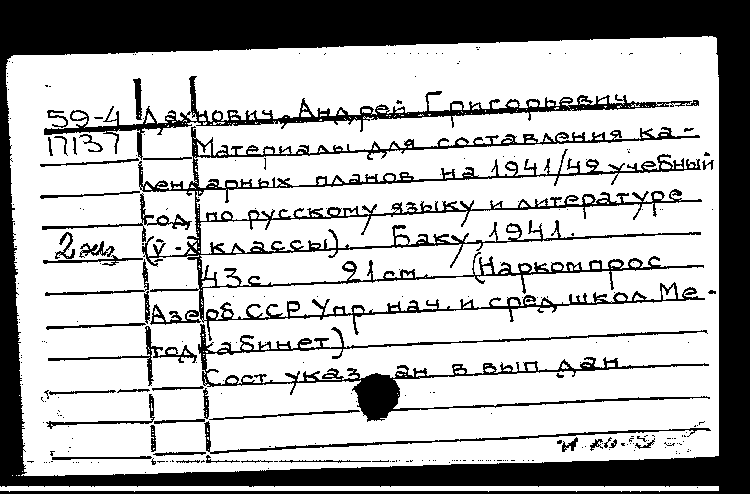 59-4 Дахнович, Андрей Григорьевич
17137 Материалы для составления ка-
лендарных планов на 1941/42 учебный
год по русскому языку и литературе
2 экз (V-X классы). Баку, 1941.
43 с. 21 см. (Наркомпрос
Азерб. ССР. Упр. нач. и сред. школ. Ме-
тодкабинет).
Сост. указан в вып. дан.